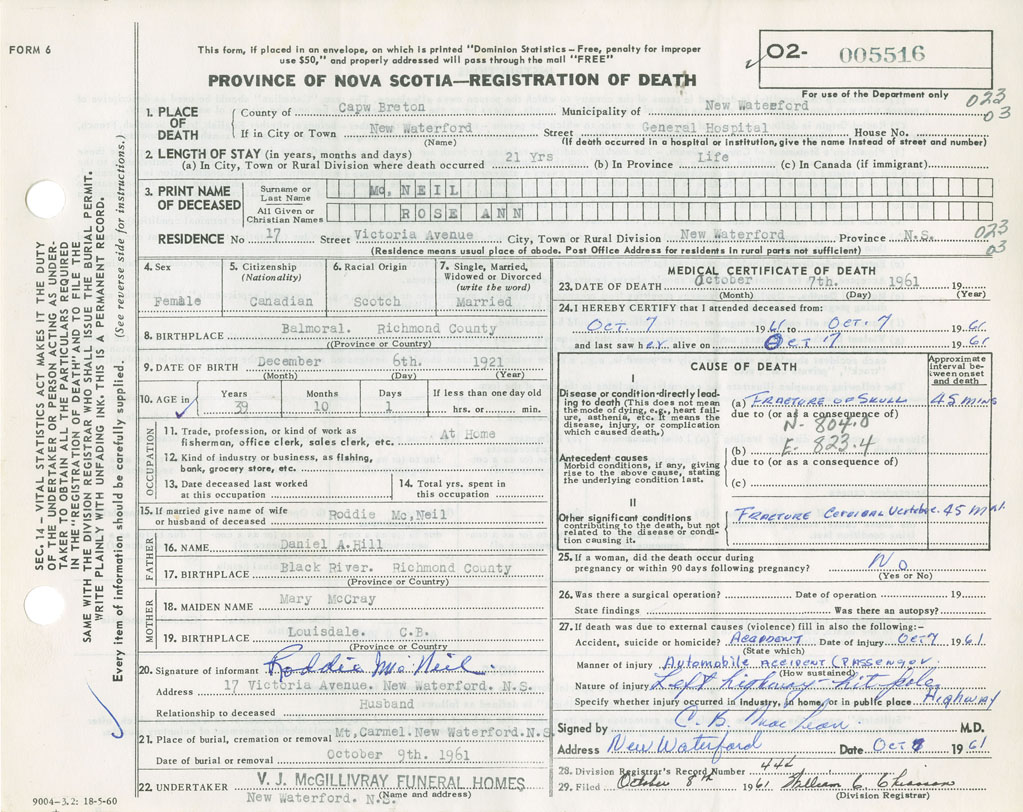 FORM 6
This form, if placed in an envelope, on which is printed "Dominion Statistics – Free, penalty for improper
use $50," and properly addressed will pass through the mail "FREE"
PROVINCE OF NOVA SCOTIA—REGISTRATION OF DEATH
O2- 005516
For use of the Department only
023
03
1. PLACE OF DEATH
County of Capw Breton Municipality of New Wateeford
If in City or Town New Waterford Street General Hospital House No.
(Name) (If death occurred in a hospital or institution, give the name instead of street and number)
2. LENGTH OF STAY (in years, months and days)
(a) In City, Town or Rural Division where death occurred 21 Yrs (b) In Province Life (c) In Canada (if immigrant)
3. PRINT NAME OF DECEASED
Surname or Last Name Mc, NEIL
All Given or Christian Names ROSE ANN
RESIDENCE No 17 Street Victoria Avenue City, Town or Rural Division New Waterford Province N.S.
023
03
(Residence means usual place of abode. Post Office Address for residents in rural parts not sufficient)
4. Sex Female
5. Citizenship (Nationality) Canadian
6. Racial Origin Scotch
7. Single, Married, Widowed or Divorced (write the word) Married
8. BIRTHPLACE Balmoral. Richmond County
((Province or Country)
9. DATE OF BIRTH December 6th. 1921
(Month) (Day) (Year)
10. AGE in Years 39 Months 10 Days 1 If less than one day old hrs. or min.
OCCUPATION
11. Trade, profession, or kind of work as
fisherman, office clerk, sales clerk, etc. At Home
12. Kind of industry or business, as fishing,
bank, grocery store, etc.
13. Date deceased last worked
at this occupation
14. Total yrs. spent in
this occupation
15. If married give name of wife
or husband of deceased Roddie Mc,Neil
FATHER
16. NAME Daniel A.Hill
17. BIRTHPLACE Black River. Richmond County
(Province or Country)
MOTHER
18. MAIDEN NAME Mary McCray
19. BIRTHPLACE Louisdale. C.B.
(Province or Country
20. Signature of informant Roddie Mc Neil.
Address 17 Victoria Avenue. New Waterford. N.S.
Relationship to deceased Husband
21. Place of burial, cremation or removal Mt,Carmel.New Waterford.N.S
Date of burial or removal October 9th. 1961
22. UNDERTAKER V. J. McGILLIVRAY FUNERAL HOMES
New Waterford. N.S. (Name and address)
9004-3.2: 18-5-60
MEDICAL CERTIFICATE OF DEATH
23. DATE OF DEATH October 7th. 1961 19
(Month) (Day) (Year)
24. I HEREBY CERTIFY that I attended deceased from:
Oct. 7 1961 to Oct. 7 1961
and last saw her alive on Oct 7 1961
CAUSE OF DEATH
Approximate interval between onset and death
I
Disease or condition directly leading to death (This does not mean
the mode of dying, e.g., heart failure, asthenia, etc. It means the
disease, injury, or complication
which caused death.)
(a) FRACTURE OF SKULL 45 MINS
due to (or as a consequence of)
N- 804.0
(b) E. 823.4
Antecedent causes
Morbid conditions, if any, giving
rise to the above cause, stating
the underlying condition last.
due to (or as a consequence of)
(c)
II
Other significant conditions
contributing to the death, but not
related to the disease or condition causing it.
FRACTURE
25. If a woman, did the death occur during
pregnancy or within 90 days following pregnancy? No
(Yes or No)
26. Was there a surgical operation? Date of operation 19
State findings Was there an autopsy?
27. If death was due to external causes (violence) fill in also the following:–
Accident, suicide or homicide? Accident Date of injury Oct 7 1961
(State which)
Manner of injury Automobile accident (Passenger
(How sustained)
Nature of injury Left highway - hit pole
Specify whether injury occurred in industry, in home, or in public place Highway
Signed by C. B. MacLean M.D.
Address New Waterford Date Oct 8 1961
28. Division Registrar's Record Number 442
29. Filed October 8th 1961 William
(Division Registrar)
SEC. 14 – VITAL STATISTICS ACT MAKES IT THE DUTY
OF THE UNDERTAKER OR PERSON ACTING AS UNDERTAKER TO OBTAIN ALL THE PARTICULARS REQUIRED
IN THE "REGISTRATION OF DEATH" AND TO FILE THE
SAME WITH THE DIVISION REGISTRAR WHO SHALL ISSUE THE BURIAL PERMIT.
WRITE PLAINLY WITH UNFADING INK. THIS IS A PERMANENT RECORD.
Every item of information should be carefully supplied. (See reverse side for instructions.)